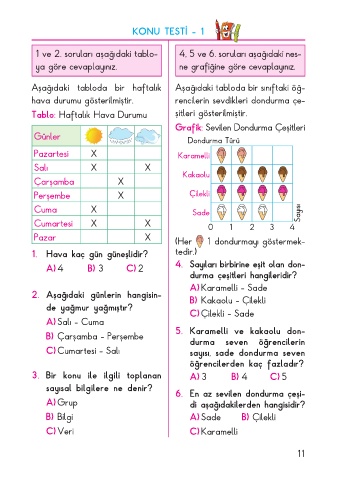 KONU TESTİ - 1
1 ve 2. soruları aşağıdaki tablo-
ya göre cevaplayınız.
Aşağıdaki tabloda bir haftalık
hava durumu gösterilmiştir.
Tablo: Haftalık Hava Durumu
Günler
Pazartesi X
Salı X X
Çarşamba X
Perşembe X
Cuma X
Cumartesi X X
Pazar X
1. Hava kaç gün güneşlidir?
A) 4 B) 3 C) 2
2. Aşağıdaki günlerin hangisin-
de yağmur yağmıştır?
A) Salı - Cuma
B) Çarşamba - Perşembe
C) Cumartesi - Salı
3. Bir konu ile ilgili toplanan
sayısal bilgilere ne denir?
A) Grup
B) Bilgi
C) Veri
4, 5 ve 6. soruları aşağıdaki nes-
ne grafiğine göre cevaplayınız.
Aşağıdaki tabloda bir sınıftaki öğ-
rencilerin sevdikleri dondurma çe-
şitleri gösterilmiştir.
Grafik: Sevilen Dondurma Çeşitleri
Dondurma Türü
Karamelli
Kakaolu
Çilekli
Sade
Sayısı
0 1 2 3 4
(Her 1 dondurmayı göstermek-
tedir.)
4. Sayıları birbirine eşit olan don-
durma çeşitleri hangileridir?
A) Karamelli - Sade
B) Kakaolu - Çilekli
C) Çilekli - Sade
5. Karamelli ve kakaolu don-
durma seven öğrencilerin
sayısı, sade dondurma seven
öğrencilerden kaç fazladır?
A) 3 B) 4 C) 5
6. En az sevilen dondurma çeşi-
di aşağıdakilerden hangisidir?
A) Sade B) Çilekli
C) Karamelli
11